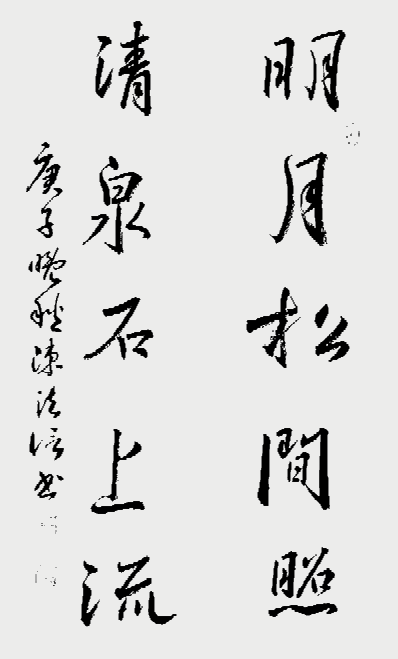 明月松間照
清泉石上流
庚子晚秋陳法信書